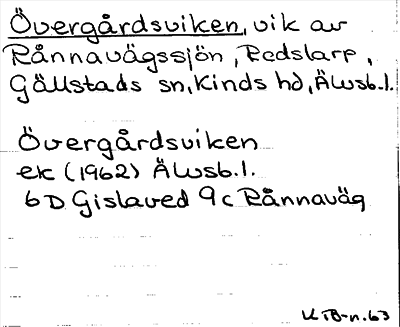 Övergårdsviken, vik av
Rånnavägssjön, Redslarp,
Gällstads sn, Kinds hd, Älvsb.l.
Övergårdsviken
ek (1962) Älvsb.l.
6D Gislaved 9c Rånnaväg
KTB-n.63